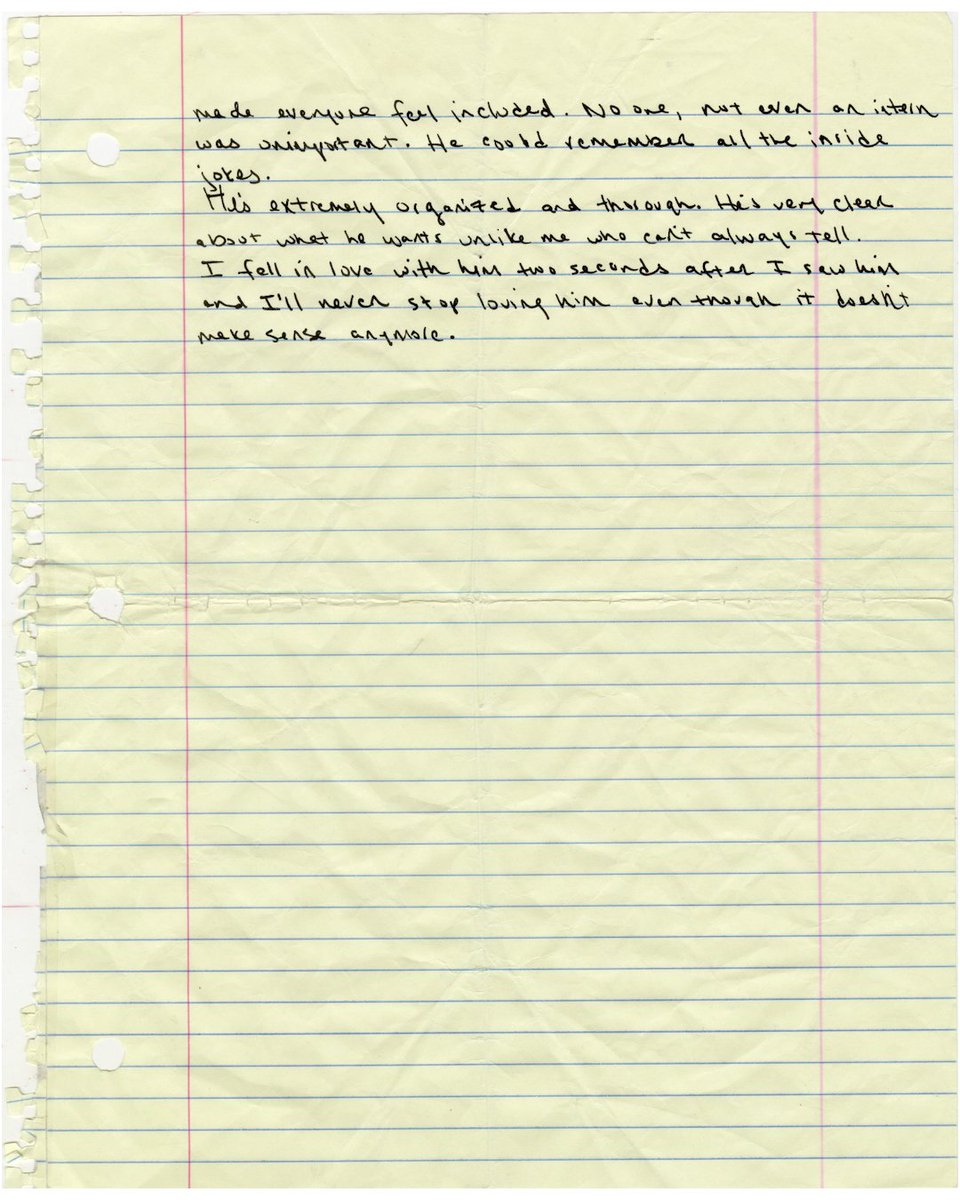 made everyone feel included. No one, not even an intern
was unimportant. He could remember all the inside
jokes.
He's extremely organized and thorough. He's very clear
about what he wants unlike me who can't always tell.
I fell in love with him two seconds after I saw him
and I'll never stop loving him even though it doesn't
make sense anymore.